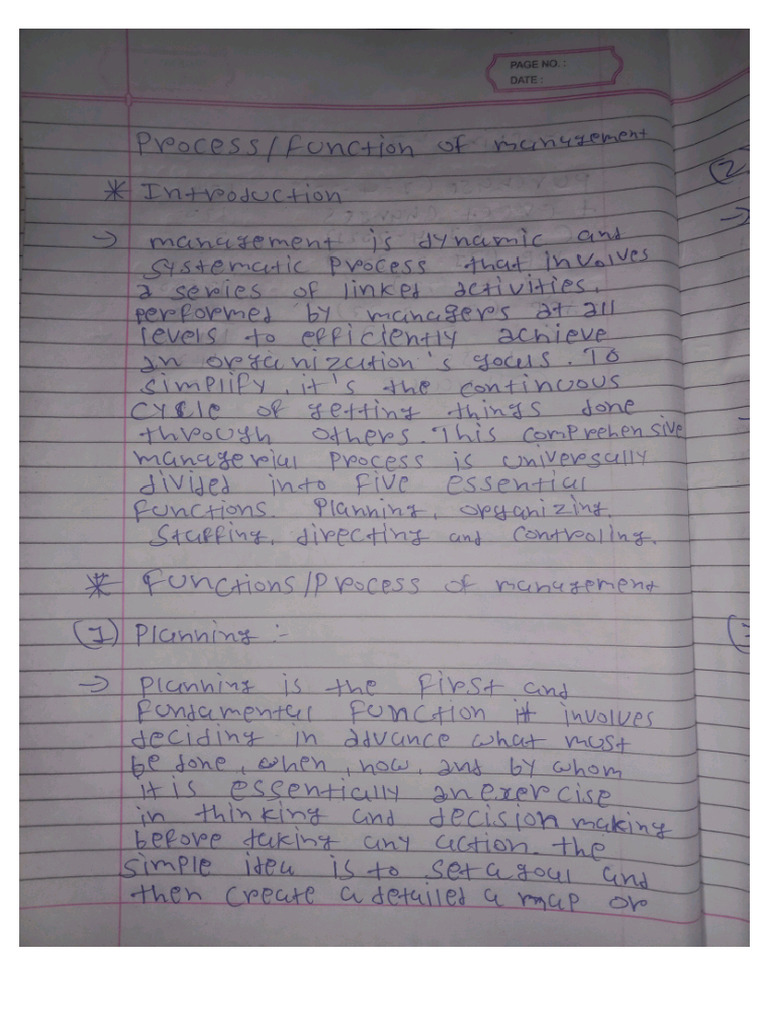 PAGE NO. :
DATE :
Process/Function of management
* Introduction
→ management is dynamic and
systematic process that involves
a series of linked activities,
performed by managers at all
levels to efficiently achieve
an organization's goals. To
simplify, it's the continuous
cycle of getting things done
through others. This comprehensive
managerial process is universally
divided into five essential
functions. Planning, organizing,
Staffing, directing and controling.
* Functions/Process of management
(1) Planning :-
→ Planning is the first and
fundamental function it involves
deciding in advance what must
be done, when, how, and by whom
it is essentially an exercise
in thinking and decision making
before taking any action. the
simple idea is to set a goal and
then create a detailed a map or
(2
→